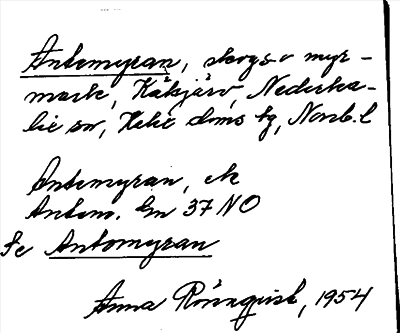 Antomyran, skogs- o myr-
mark, Käkjärv, Nederka-
lix sn, Kalix doms hg, Norrb. l
Antomyran, ek
Antom. Gn 37 NO
Se Antomyran
Anna Rönnqvist, 1954